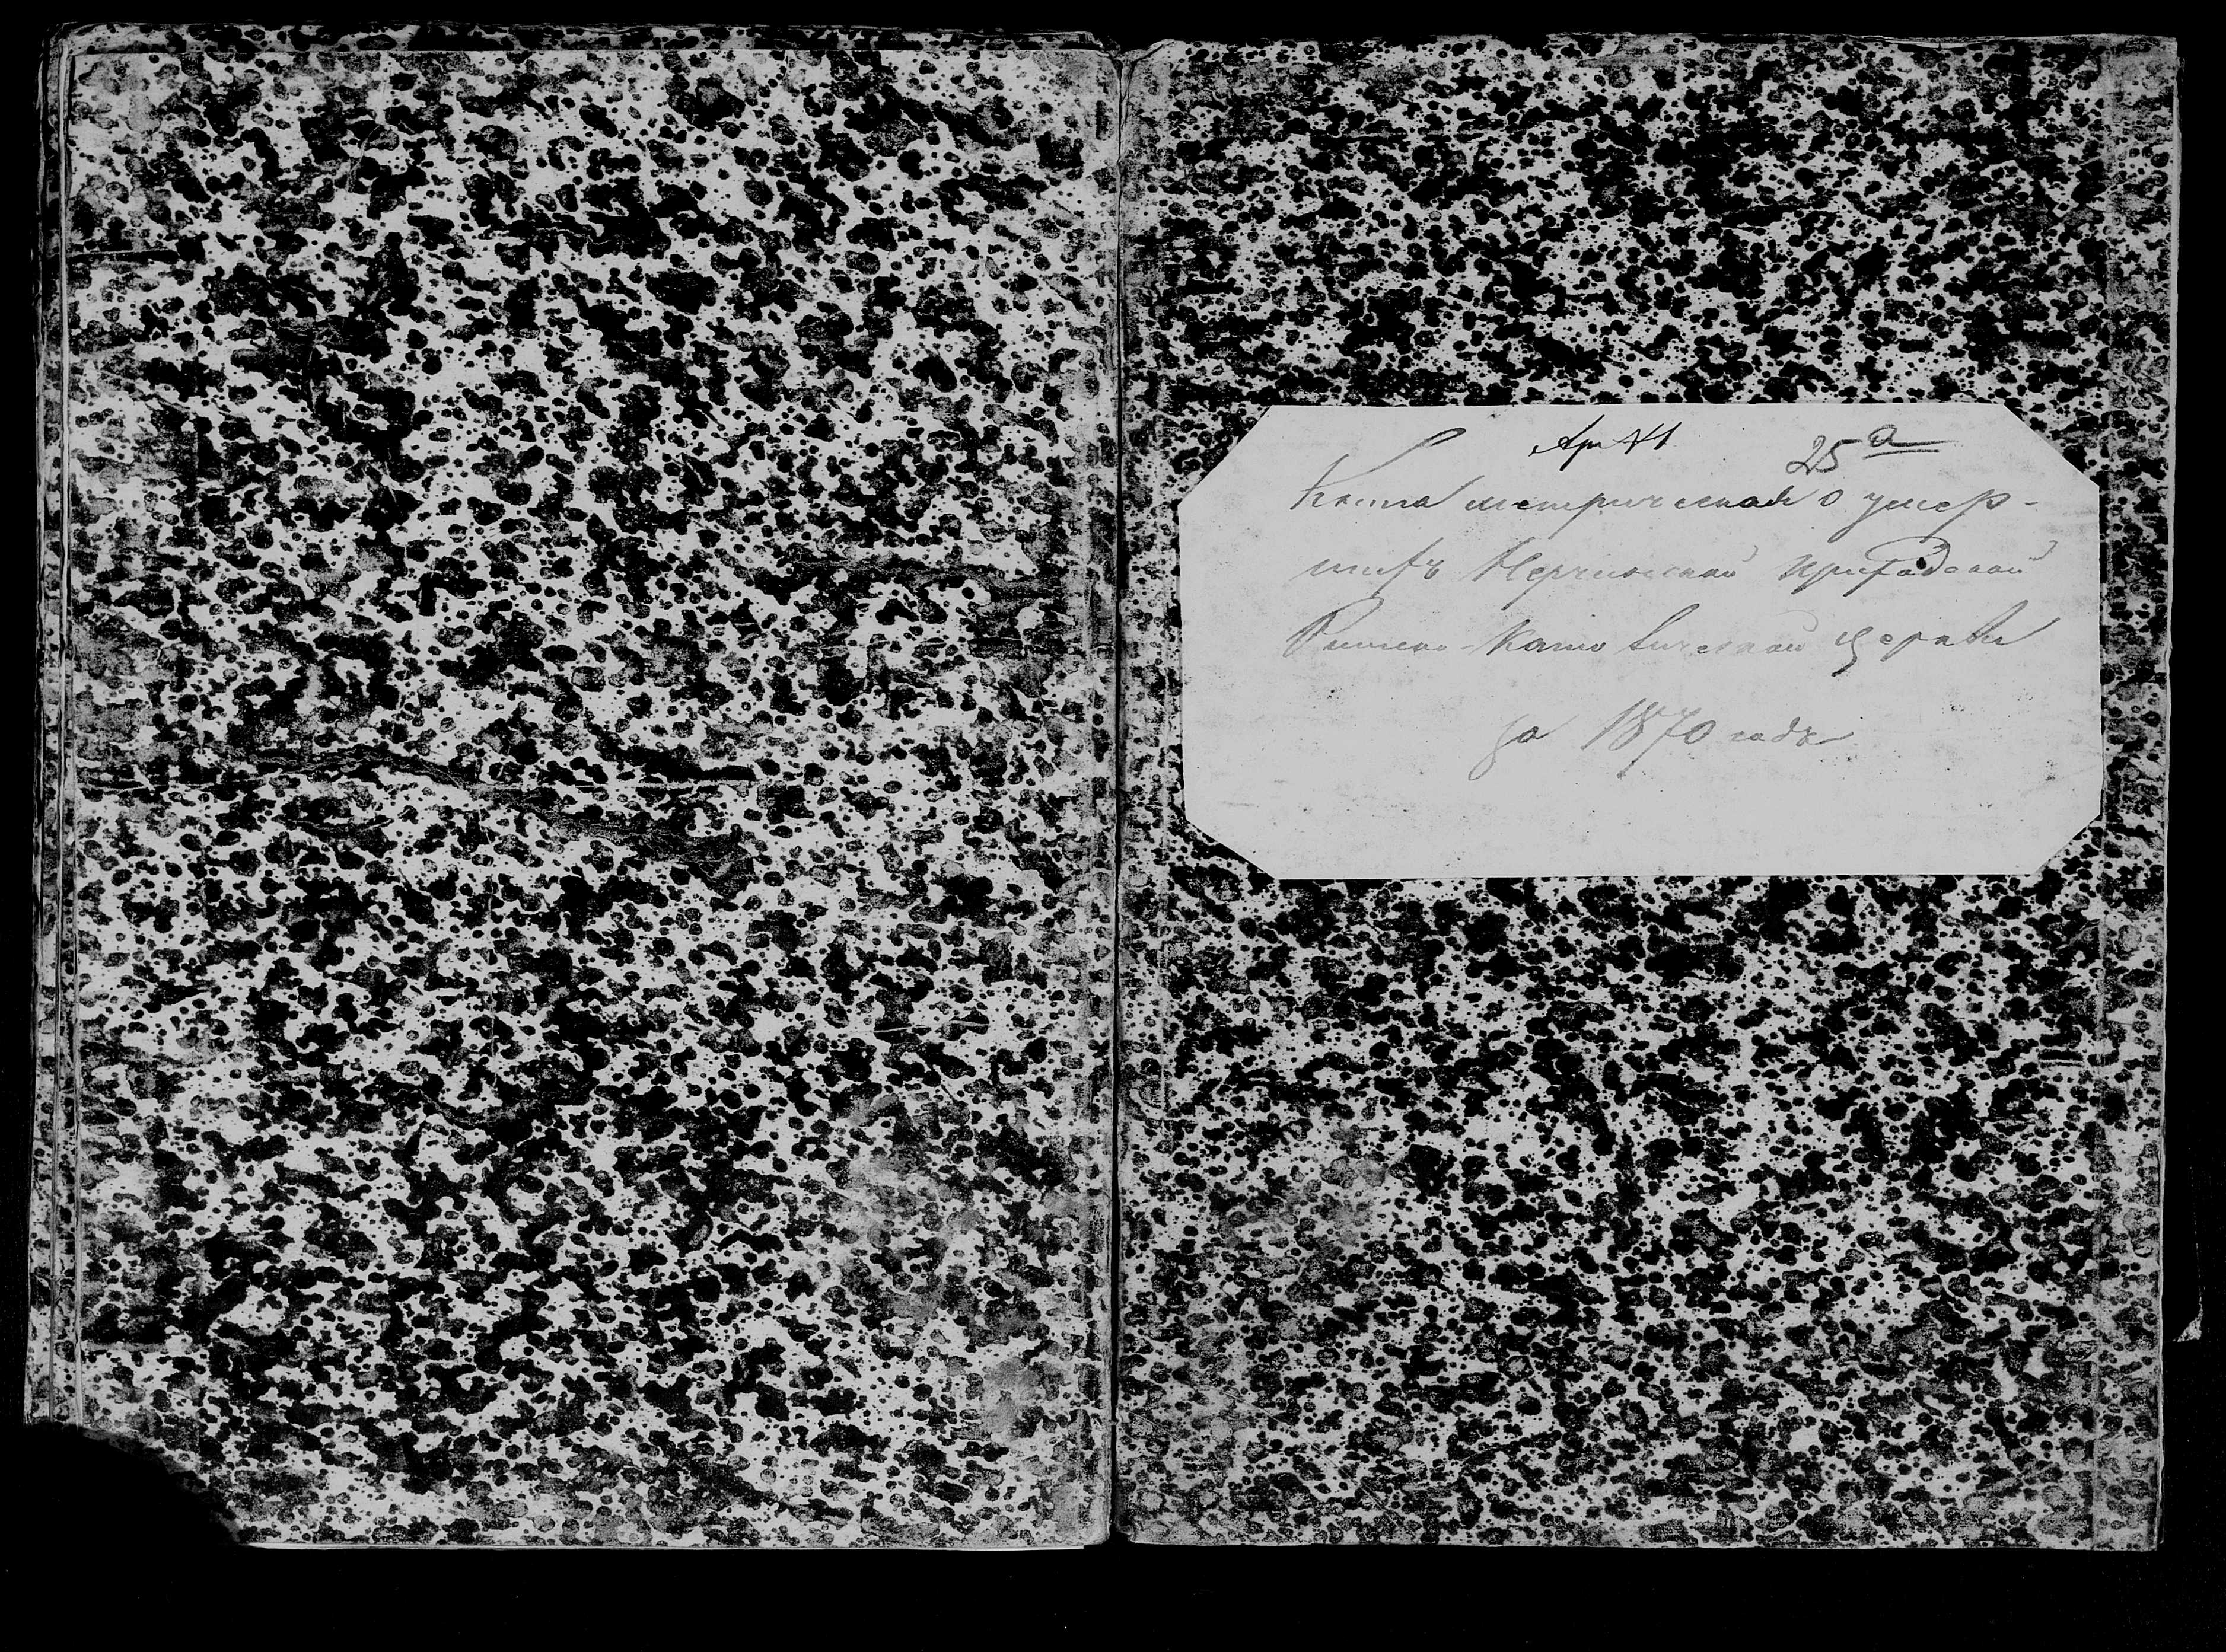 25а
Книга метрическая о умер-
шихъ Нерчинской приходской
Римско-Католической церкви
за 1870 годъ